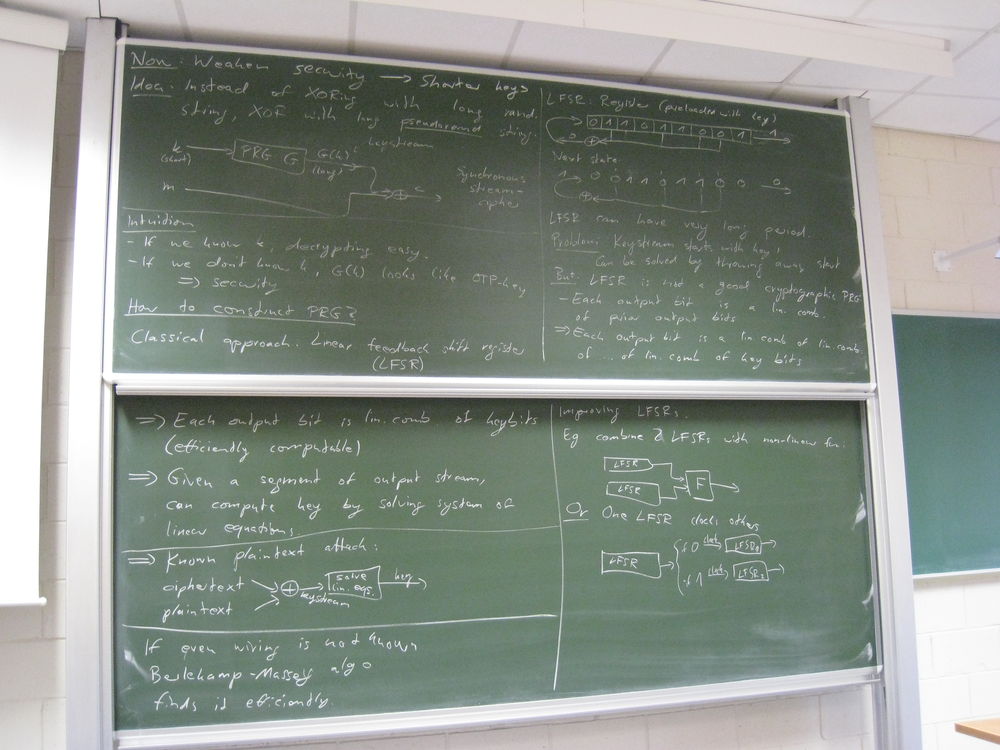 Now: Weaken security → Shorter keys
Idea: Instead of XORing with long rand.
string, XOR with long pseudorand string.
keystream
k
(short)
PRG G
G(k)
(long)
m
c
Synchronous
stream-
cipher
Intuition
- If we know k, decrypting easy
- If we don't know k, G(k) looks like OTP-key
⇒ security
How to construct PRG?
Classical approach: Linear feedback shift register
(LFSR)
LFSR: Register (preloaded with key)
0 1 1 0 1 1 0 0 1 → 1
0
Next state:
1 0 0 1 1 0 1 1 0 0 → 0
LFSR can have very long period.
Problem: Keystream starts with key!
Can be solved by throwing away start
But: LFSR is not a good cryptographic PRG
- Each output bit is a lin. comb.
of prior output bits
⇒ Each output bit is a lin. comb of lin. comb.
of ... of lin. comb of key bits
⇒ Each output bit is lin. comb of keybits
(efficiently computable)
⇒ Given a segment of output stream,
can compute key by solving system of
linear equations
⇒ Known plaintext attack:
ciphertext
plaintext
keystream
solve
lin. eqs.
key
If even wiring is not known
Berlekamp-Massey algo
finds it efficiently.
Improving LFSRs.
Eg combine 2 LFSRs with non-linear fun:
LFSR
LFSR
F
Or One LFSR clocks others
LFSR
if 0 clock LFSR
if 1 clock LFSR